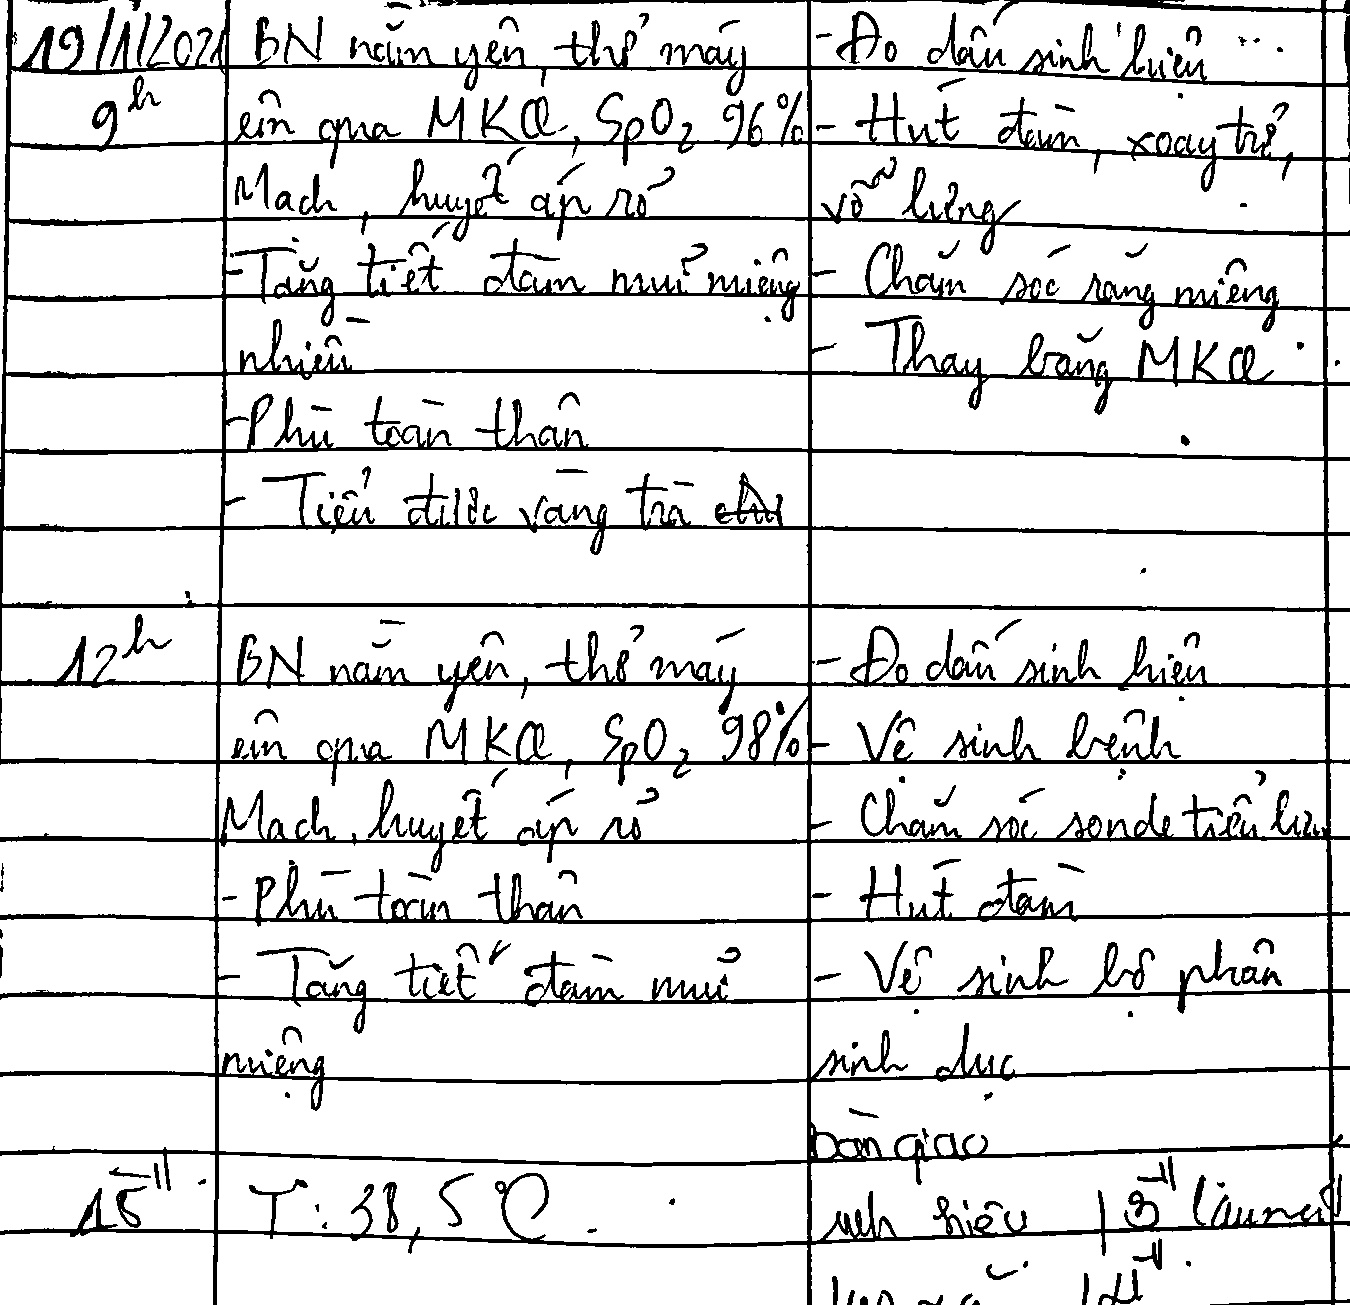 19/1/2021
9h
BN nằm yên, thở máy
êm qua MKQ, SpO2 96%
Mạch, huyết áp rõ
- Tăng tiết đàm mũi miệng
nhiều
- Phù toàn thân
- Tiểu được vàng trà
- Đo dấu sinh hiệu
- Hút đàm, xoay trở,
vỗ lưng
- Chăm sóc răng miệng
- Thay băng MKQ
12h
BN nằm yên, thở máy
êm qua MKQ, SpO2 98%
Mạch, huyết áp rõ
- Phù toàn thân
- Tăng tiết đàm mũi
miệng
- Đo dấu sinh hiệu
- Vệ sinh bệnh
- Chăm sóc sonde tiểu lưu
- Hút đàm
- Vệ sinh bộ phận
sinh dục
Bàn giao
15h
T: 38,5°C.
sinh hiệu